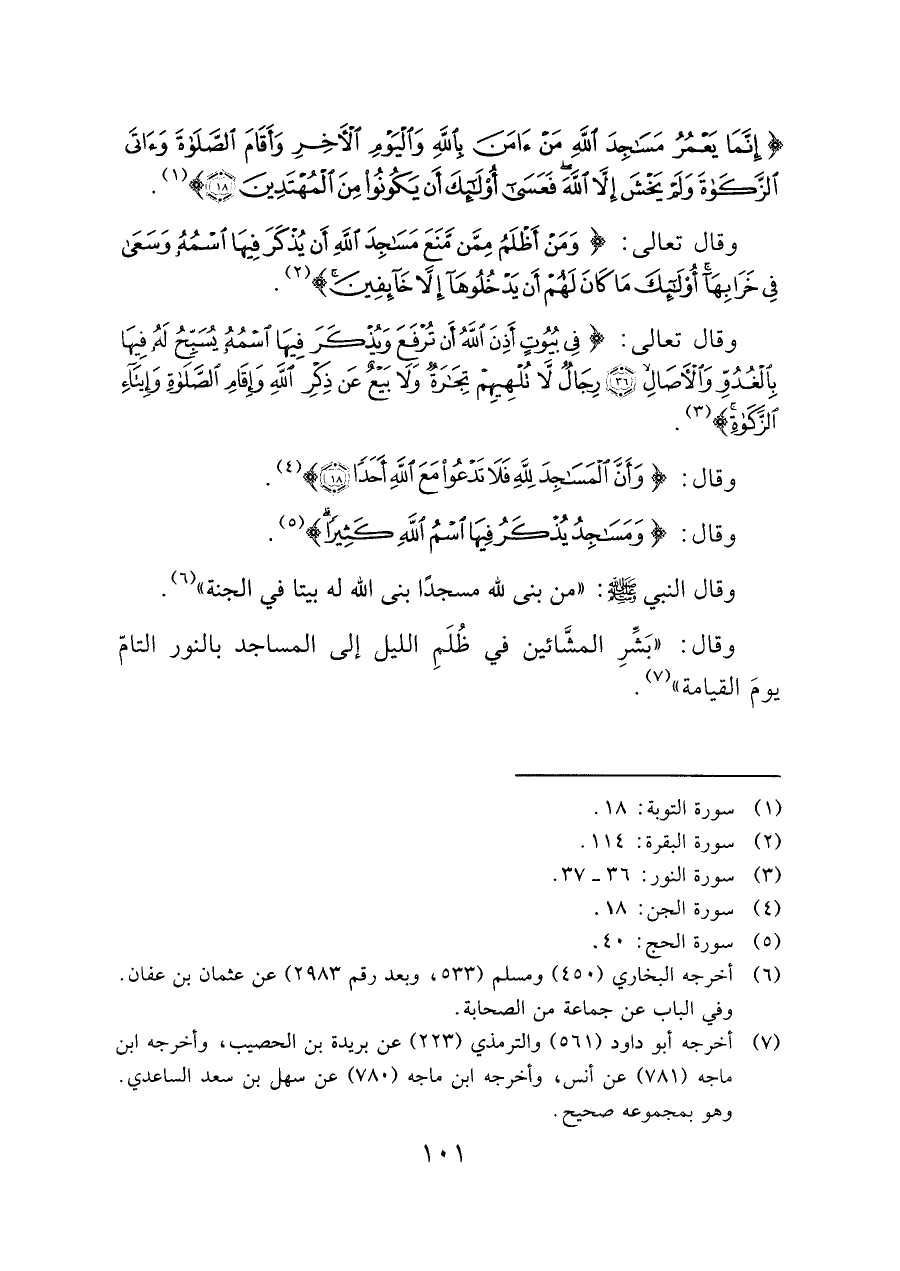 ﴿ إِنَّمَا يَعْمُرُ مَسَٰجِدَ ٱللَّهِ مَنْ ءَامَنَ بِٱللَّهِ وَٱلْيَوْمِ ٱلْأَخِرِ وَأَقَامَ ٱلصَّلَوٰةَ وَءَاتَى
ٱلزَّكَوٰةَ وَلَمْ يَخْشَ إِلَّا ٱللَّهَ ۖ فَعَسَىٰٓ أُو۟لَٰٓئِكَ أَن يَكُونُوا۟ مِنَ ٱلْمُهْتَدِينَ ١٨﴾(١).
وقال تعالى: ﴿ وَمَنْ أَظْلَمُ مِمَّن مَّنَعَ مَسَٰجِدَ ٱللَّهِ أَن يُذْكَرَ فِيهَا ٱسْمُهُۥ وَسَعَىٰ
فِى خَرَابِهَآ ۚ أُو۟لَٰٓئِكَ مَا كَانَ لَهُمْ أَن يَدْخُلُوهَآ إِلَّا خَآئِفِينَ ۚ﴾(٢).
وقال تعالى: ﴿ فِى بُيُوتٍ أَذِنَ ٱللَّهُ أَن تُرْفَعَ وَيُذْكَرَ فِيهَا ٱسْمُهُۥ يُسَبِّحُ لَهُۥ فِيهَا
بِٱلْغُدُوِّ وَٱلْأَصَالِ ۙ ٣٦ رِجَالٌ لَّا تُلْهِيهِمْ تِجَٰرَةٌ وَلَا بَيْعٌ عَن ذِكْرِ ٱللَّهِ وَإِقَامِ ٱلصَّلَوٰةِ وَإِيتَآءِ
ٱلزَّكَوٰةِ ۙ﴾(٣).
وقال: ﴿ وَأَنَّ ٱلْمَسَٰجِدَ لِلَّهِ فَلَا تَدْعُوا۟ مَعَ ٱللَّهِ أَحَدًا ١٨﴾(٤).
وقال: ﴿ وَمَسَٰجِدُ يُذْكَرُ فِيهَا ٱسْمُ ٱللَّهِ كَثِيرًا ۗ﴾(٥).
وقال النبي ﷺ: «من بنى لله مسجدًا بنى الله له بيتا في الجنة»(٦).
وقال: «بَشِّرِ المشَّائين في ظُلَمِ الليل إلى المساجد بالنور التامّ
يومَ القيامة»(٧).
(١) سورة التوبة: ١٨.
(٢) سورة البقرة: ١١٤.
(٣) سورة النور: ٣٦ ـ ٣٧.
(٤) سورة الجن: ١٨.
(٥) سورة الحج: ٤٠.
(٦) أخرجه البخاري (٤٥٠) ومسلم (٥٣٣، وبعد رقم ٢٩٨٣) عن عثمان بن عفان.
وفي الباب عن جماعة من الصحابة.
(٧) أخرجه أبو داود (٥٦١) والترمذي (٢٢٣) عن بريدة بن الحصيب، وأخرجه ابن
ماجه (٧٨١) عن أنس، وأخرجه ابن ماجه (٧٨٠) عن سهل بن سعد الساعدي.
وهو بمجموعه صحيح.
١٠١